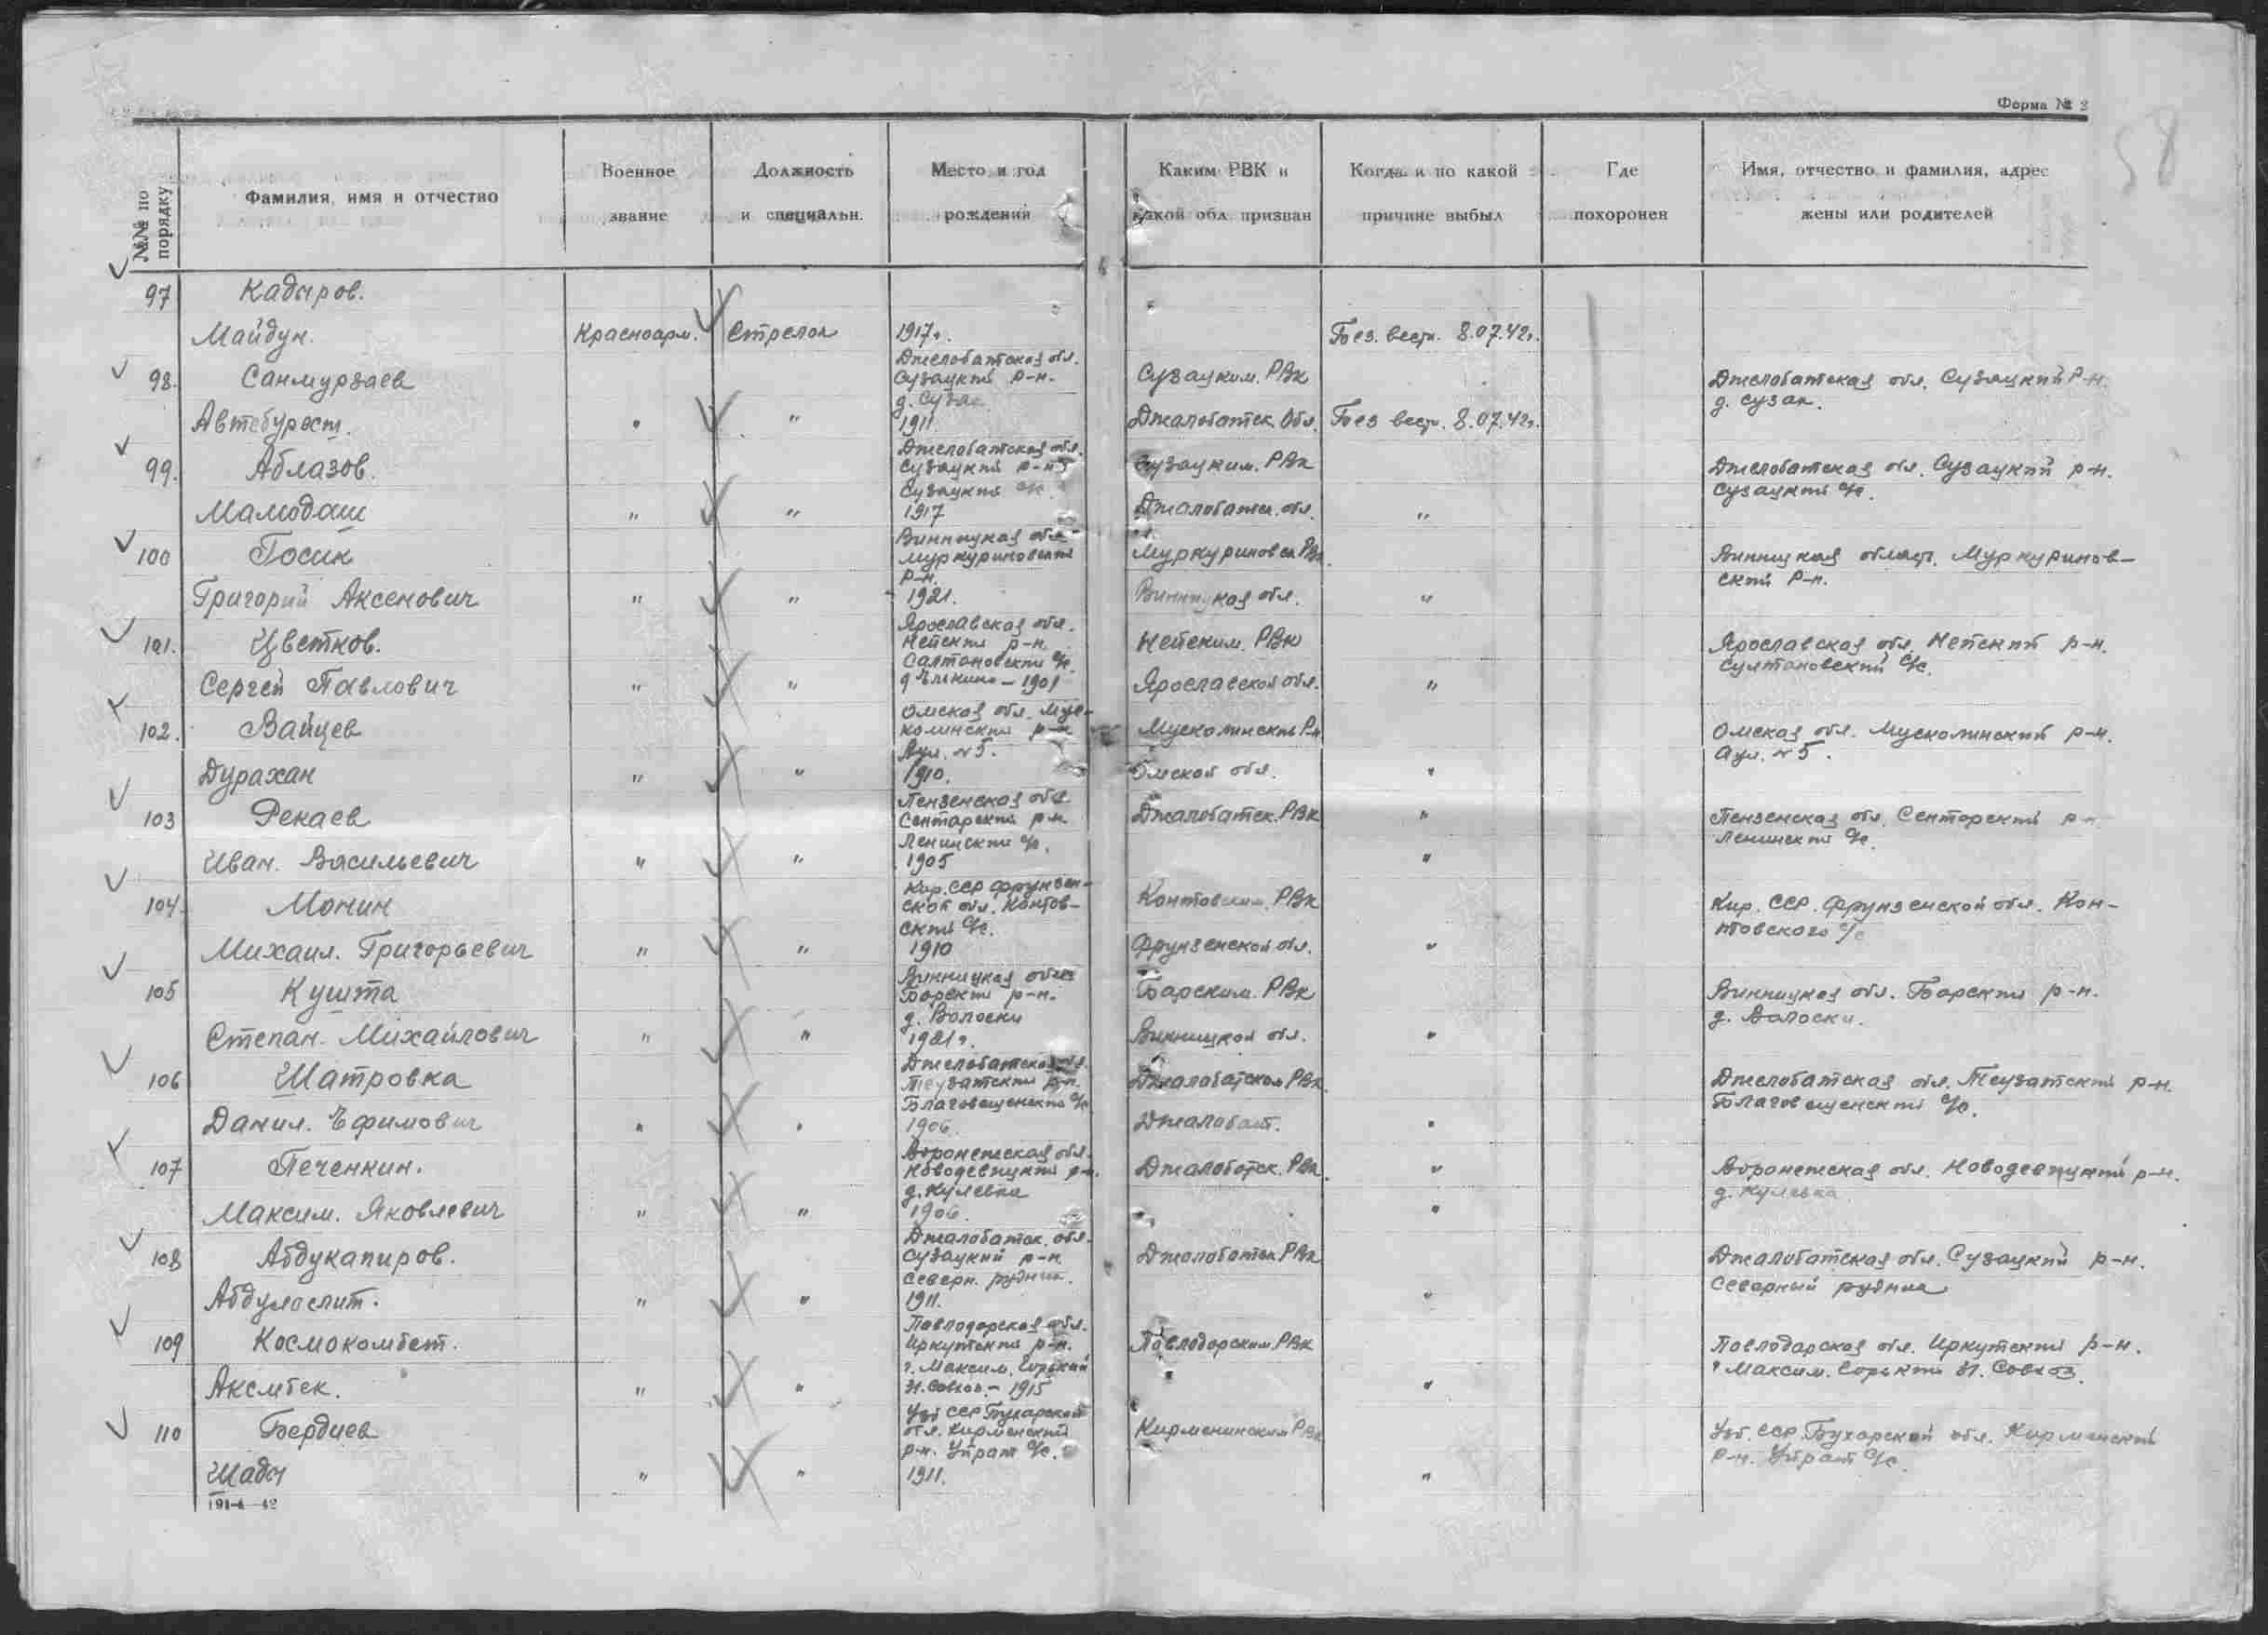 Форма № 2
58
№№ по порядку
Фамилия, имя и отчество
Военное звание
Должность и специальн.
Место и год рождений
Каким РВК и какой обл призван
Когда и по какой причине выбыл
Где похоронен
Имя, отчество и фамилия, адрес жены или родителей
97 Кадыров.
Майдун. Красноарм. Стрелок 1917г. Без. вести. 8.07.42г.
98. Санмурзаев Джелобатская обл. Сузацкий р-н. д. Сузак Сузацким. РВК Джелобатская обл. Сузацкий Р-н. д. Сузак.
Автебурест. " " 1911 Джалобатск. Обл. Без вести. 8.07.42г.
99. Аблазов. Джелобатская обл. Сузацкий р-н Сузацкий с/с. Сузацким. РВК Джелобатская обл. Сузацкий р-н. Сузацкий с/с.
Мамодаш " " 1917 Джалобатск. обл. "
100 Госик Винницкая обл. Муркуриновский р-н. Муркуриновск РВк. Винницкая област. Муркуринов-ский Р-н.
Григорий Аксенович " " 1921. Винницкая обл. "
101. Цветков. Ярославская обл. Нейский р-н. Салтановский с/с. Нейским. РВК Ярославская обл. Нейский р-н. Султановский с/с.
Сергей Павлович " " д Елькино - 1901 Ярославской обл. "
102. Вайцев Омская обл. Мус-колинский р-н Аул. №5. Мусколинский Рн Омская обл. Мусколинский р-н. Аул. №5.
Дурахан " " 1910. Омской обл. "
103 Рекаев Пензенская обл Сентарский р-н Ленинский с/с. Джалобатск. РВК " Пензенская обл. Сенторский р-н Ленинский с/с.
Иван. Васильевич " " 1905 "
104. Монин Кир. ССР Фрунзен-ской обл. Контов-ский с/с. Контовским. РВК Кир. ССР. Фрунзенской обл. Кон-товского с/с
Михаил. Григорьевич " " 1910 Фрунзенской обл. "
105 Кушта Винницкая обл Барский р-н. д. Волоски Барским. РВК Винницкая обл. Барский р-н. д. Волоски.
Степан. Михайлович " " 1921г. Винницкой обл. "
106 Шатровка Джелобатской обл. Теузатский р-н. Благовещенский с/с Джалобатском РВК Джелобатская обл. Теузатский р-н. Благовещенский с/с.
Данил. Ефимович " " 1906. Джалобат. "
107 Печенкин. Воронежская обл. Новодевицкий р-н. д. Кулевка Джалоботск. РВК. " Воронежская обл. Новодевицкий р-н. д. Кулевка
Максим. Яковлевич " " 1906. "
108 Абдукапиров. Джалобатск. обл. Сузацкий р-н Северн. рудник. Джалобатск РВК Джалобатская обл. Сузацкий р-н. Северный рудник
Абдулослит. " " 1911. "
109 Космокомбет. Павлодарская обл. Иркутский р-н. г. Максим. Горький Павлодарским РВК Павлодарская обл. Иркутский р-н. г Максим. Горький Н. Совхоз.
Аксмбек. " " Н. Совхоз. - 1915 "
110 Бердиев Узб ССР Бухарской обл. Кирменский р-н. Упрат с/с. Кирменинским РВК Узб. ССР. Бухарской обл. Кирменский р-н. Упрат с/с.
Шады " " 1911. "
191-4-42